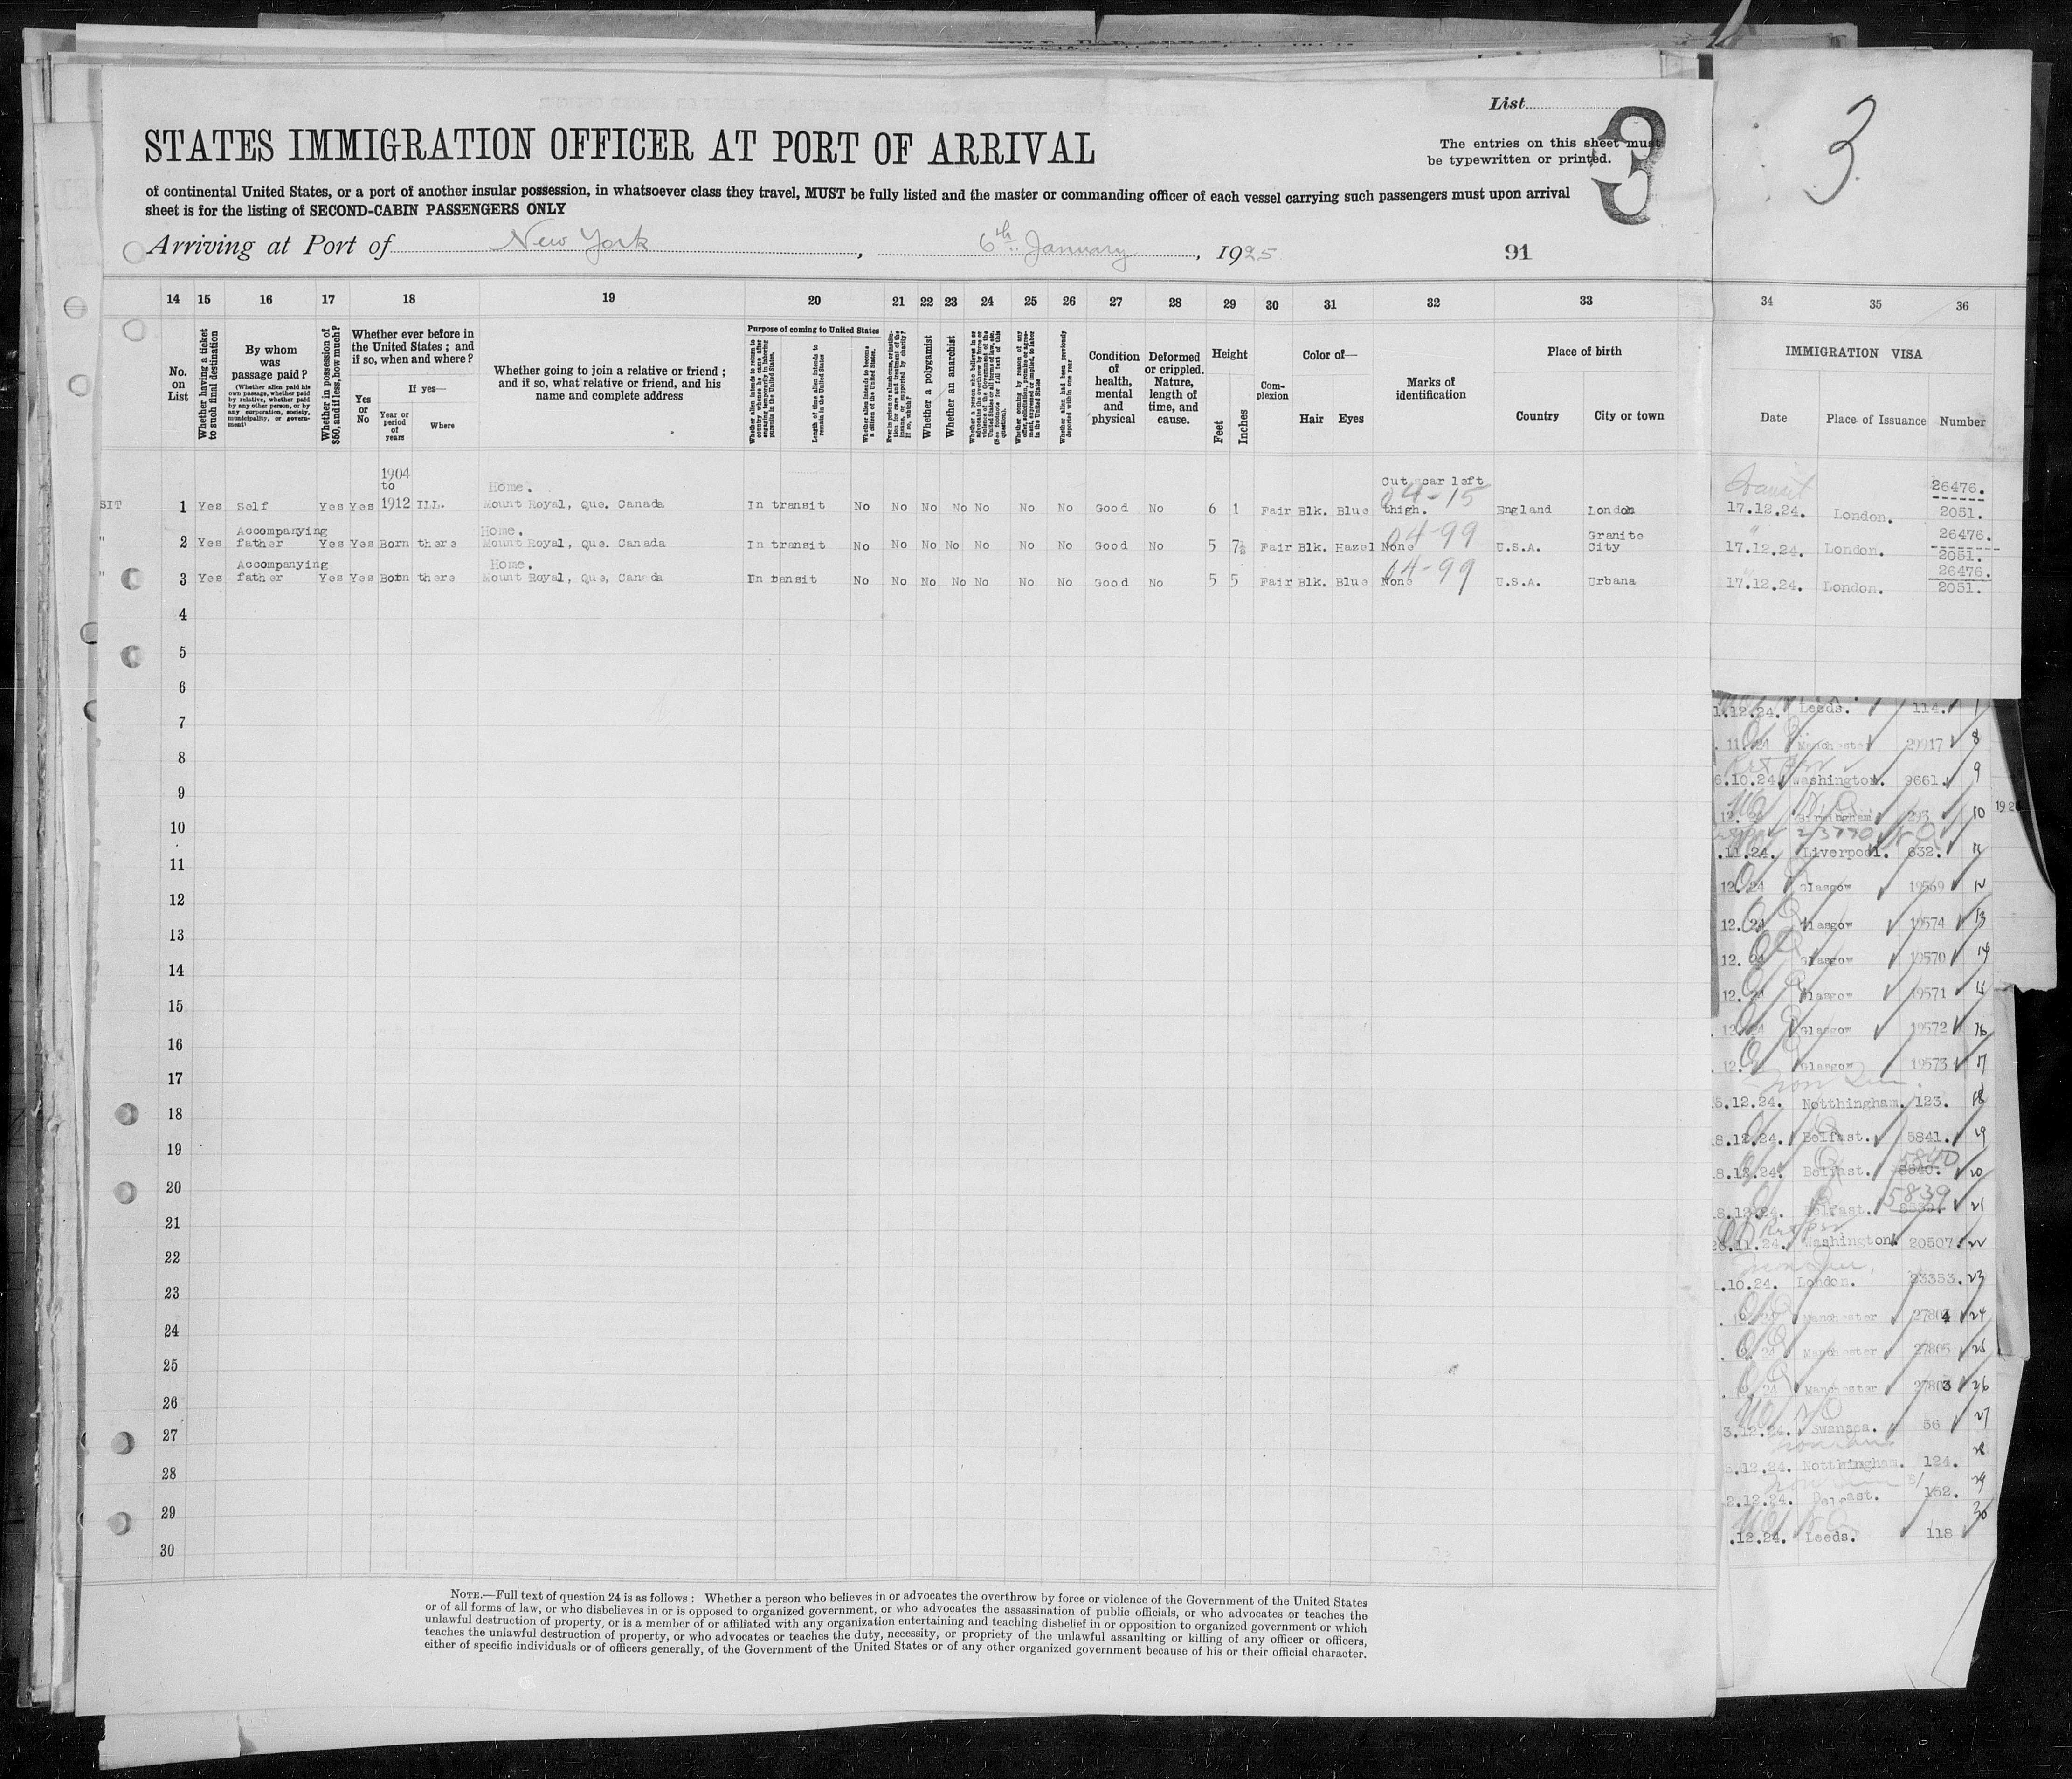 List
3
STATES IMMIGRATION OFFICER AT PORT OF ARRIVAL
The entries on this sheet must
be typewritten or printed.
3
of continental United States, or a port of another insular possession, in whatsoever class they travel, MUST be fully listed and the master or commanding officer of each vessel carrying such passengers must upon arrival
sheet is for the listing of SECOND-CABIN PASSENGERS ONLY
Arriving at Port of New York, 6th January, 1925
91
14 15 16 17 18 19 20 21 22 23 24 25 26 27 28 29 30 31 32 33 34 35 36
No. on List
Whether having a ticket to such final destination
By whom was passage paid?
(Whether alien paid his own passage, whether paid by relative, whether paid by any other person, or by any corporation, society, municipality, or government)
Whether in possession of $50, and if less, how much?
Whether ever before in the United States; and if so, when and where?
Yes or No
If yes—
Year or period of years
Where
Whether going to join a relative or friend; and if so, what relative or friend, and his name and complete address
Purpose of coming to United States
Whether alien intends to return to country whence he came after engaging temporarily in laboring pursuits in the United States.
Length of time alien intends to remain in the United States
Whether alien intends to become a citizen of the United States.
Ever in prison or almshouse, or institution for care and treatment of the insane, or supported by charity? If so, which?
Whether a polygamist
Whether an anarchist
Whether coming by reason of any offer, solicitation, promise or agreement, expressed or implied, to labor in the United States
Whether alien had been previously deported within one year
Condition of health, mental and physical
Deformed or crippled. Nature, length of time, and cause.
Height
Feet
Inches
Complexion
Color of—
Hair
Eyes
Marks of identification
Place of birth
Country
City or town
IMMIGRATION VISA
Date
Place of Issuance
Number
SIT 1 Yes Self Yes Yes 1904 to 1912 ILL. Home. Mount Royal, Que. Canada In transit No No No No No No No Good No 6 1 Fair Blk. Blue Cut scar left thigh. 04-15 England London Transit 17.12.24. London. 26476. 2051.
" 2 Yes Accompanying father Yes Yes Born there Home. Mount Royal, Que. Canada In transit No No No No No No No Good No 5 7½ Fair Blk. Hazel None 04-99 U.S.A. Granite City " 17.12.24. London. 26476. 2051.
" 3 Yes Accompanying father Yes Yes Born there Home. Mount Royal, Que, Canada In transit No No No No No No No Good No 5 5 Fair Blk. Blue None 04-99 U.S.A. Urbana " 17.12.24. London. 26476. 2051.
4
5
6
7
8
9
10
11
12
13
14
15
16
17
18
19
20
21
22
23
24
25
26
27
28
29
30
1.12.24. Leeds. 114.
11.24 Manchester 29917 8
6.10.24 Washington. 9661 9
12. Birmingham 293 10
.11.24. Liverpool. 632. 11
12.24 Glasgow 19569 12
12.24 Glasgow 19574 13
12.24 Glasgow 19570 14
12.24 Glasgow 19571 15
12.24 Glasgow 19572 16
12. Glasgow 19573 17
5.12.24. Notthingham. 123. 18
8.12.24. Belfast. 5841. 19
8.12.24. Belfast. 5840 20
8.12.24. Belfast. 5839 21
26.11.24. Washington 20507. 22
.10.24. London. 23353. 23
Manchester 27804 24
Manchester 27805 25
Manchester 27803 26
3.12.24. Swansea. 56 27
5.12.24. Notthingham. 124. 28
2.12.24. Belfast. 162. 29
.12.24. Leeds. 118 30
NOTE.—Full text of question 24 is as follows: Whether a person who believes in or advocates the overthrow by force or violence of the Government of the United States
or of all forms of law, or who disbelieves in or is opposed to organized government, or who advocates the assassination of public officials, or who advocates or teaches the
unlawful destruction of property, or is a member of or affiliated with any organization entertaining and teaching disbelief in or opposition to organized government or which
teaches the unlawful destruction of property, or who advocates or teaches the duty, necessity, or propriety of the unlawful assaulting or killing of any officer or officers,
either of specific individuals or of officers generally, of the Government of the United States or of any other organized government because of his or their official character.